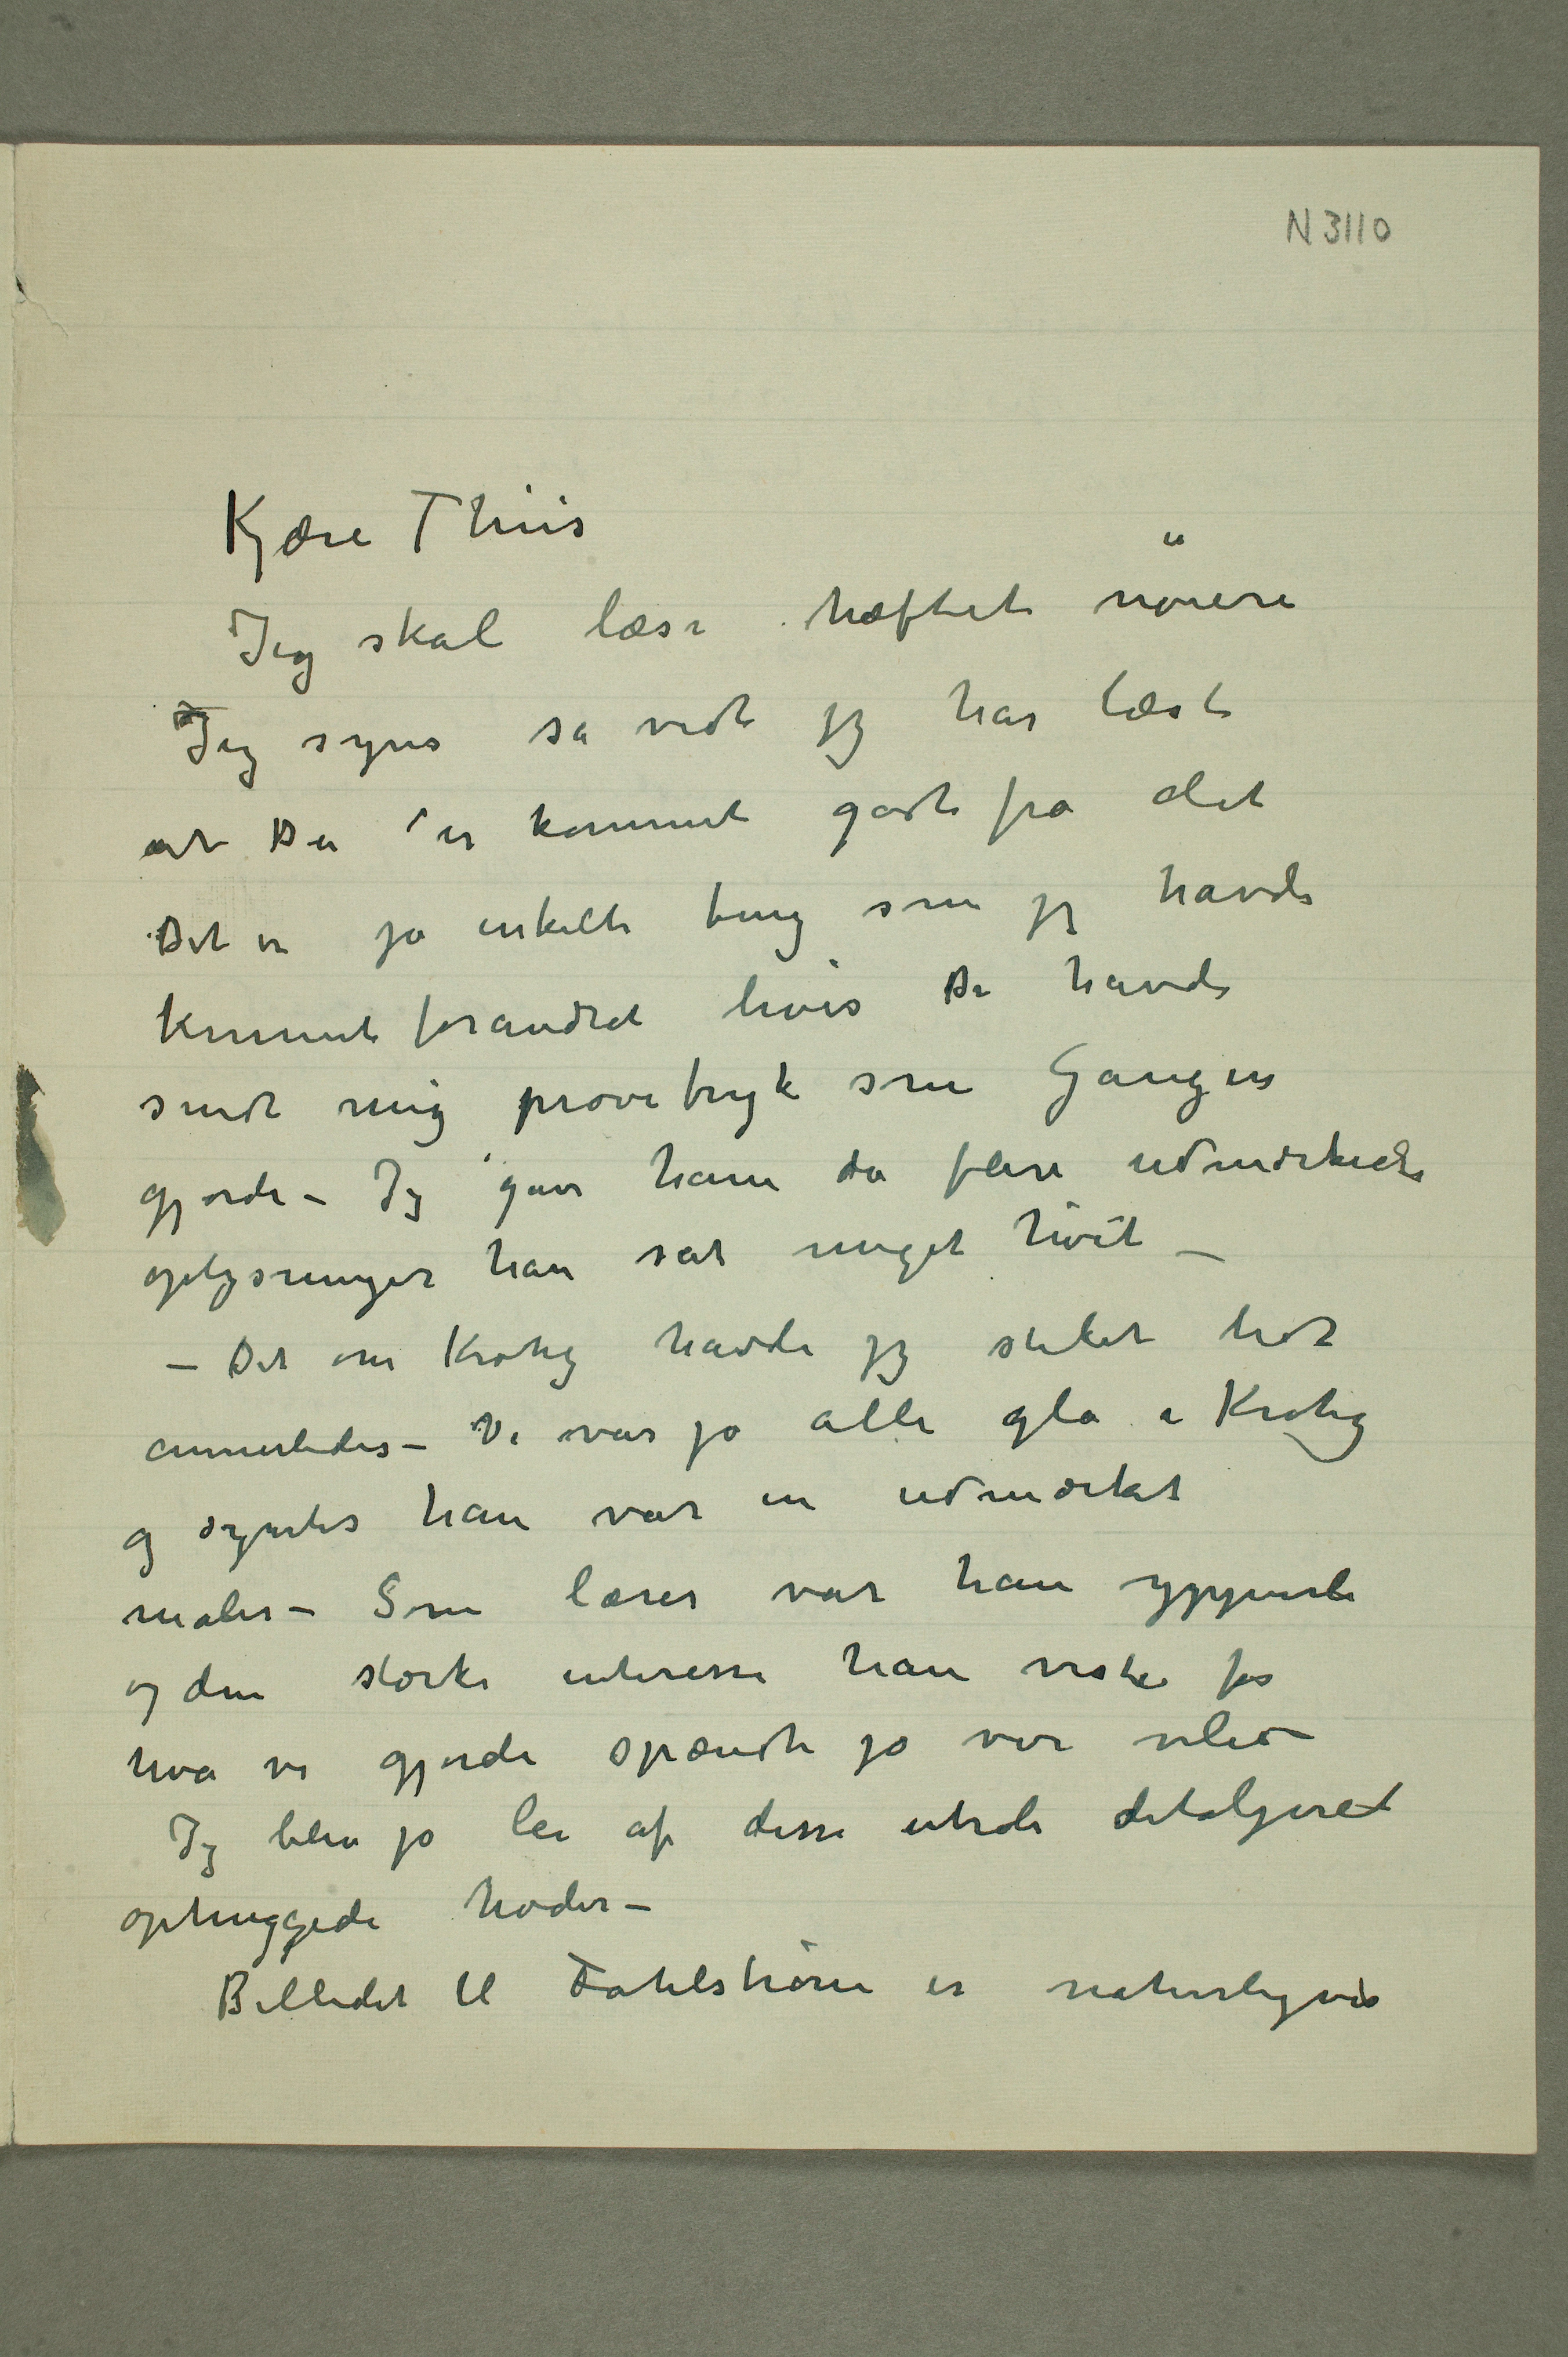 N 3110
Kjære Thiis
Jeg skal læse hæftet nöiere
Jeg synes så vidt jeg har læst
at De er kommet godt fra det
Det er jo enkelte ting som jeg havde
kunnet forandret hvis De havde
sendt mig prøvetryk som Gauguin
gjorde – Jeg gav ham da flere udmærkede
oplysninger han sat meget hvit –
– Det om Krohg havde jeg stilet lidt
annerledes – Vi var jo alle gla i Krohg
og syntes han var en udmærket
maler – Som lærer var han ypperlig
og den stærke interesse han viste for
hva vi gjorde spændte jo vor vilie –
Jeg blev jo lei af disse utrolig detaljeret
ophuggede hoder –
Billedet til Dahlstrøm er naturligvis